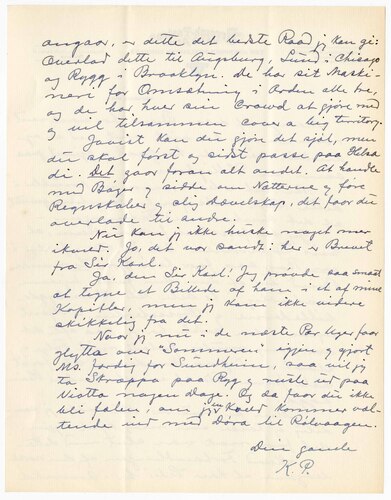 angaar, er dette det bedste Raad jeg kan gi:
Overlad dette til Augsburg, Lund i Chicago
og Rygg i Brooklyn. De har sit Maski-
neri for Omsætning i Orden alle tre,
og de har hver sin Crowd at gjøre med
og vil tilsammen cover a big territory.
Javist kan du gjøre det sjøl, men
du skal først og sidst passe paa Helsa
di. Det gaar foran alt andet. At handle
med Bøger og sidde om Nætterne og føre
Regnskaber og slig Dævelskap, det faar du
overlade til andre.
Nu kan jeg ikke huske noget mer
ikveld. Jo, det var sandt: her er Brevet
fra Siv Karl.
Ja, den Siv Karl! Jeg prøvde saa smaat
at tegne et Billede af ham i et af mine
Kapitler, men jeg kom ikke videre
skikkelig fra det.
Naar jeg nu i de næste Par Uger faar
glytta over "Sommeren" igjen og gjort
Ms. færdig for Sundheim, saa vil jeg
ta Skrappa paa Ryg og rusle ud paa
Viotta nogen Dage. Og da faar du ikke
bli falen, om jeg en Kveld kommer val-
tende ind med Dora til Rölvaagen.
Din gamle
K. P.